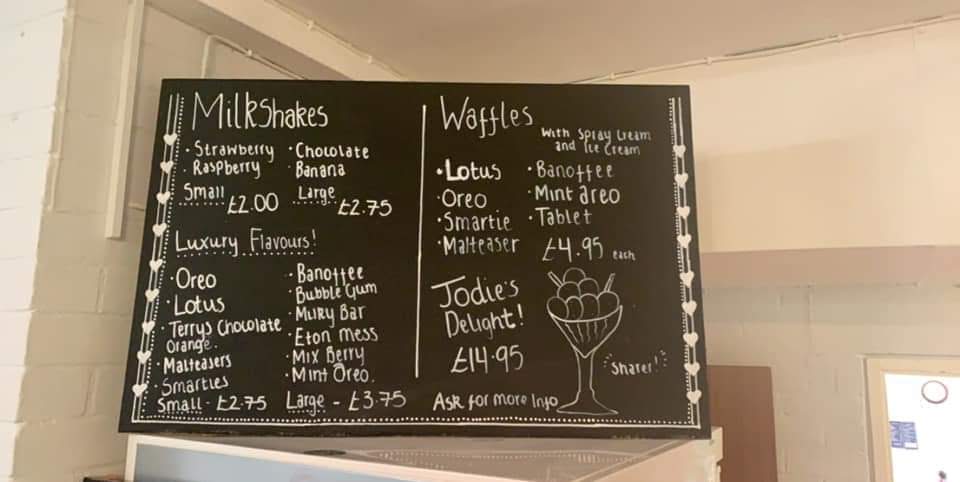 MilkShakes
· Strawberry · Chocolate
· Raspberry · Banana
Small £2.00 Large £2.75
Luxury Flavours!
· Oreo
· Lotus
· Terrys Chocolate
Orange.
· Malteasers
· Smarties
· Banoffee
· Bubble Gum
· Milky Bar
· Eton mess
· Mix Berry
· Mint Oreo.
Small - £2.75 Large - £3.75
Waffles
With Spray Cream
and Ice Cream
· Lotus
· Oreo
· Smartie
· Malteaser
· Banoffee
· Mint areo
· Tablet
£4.95 each
Jodie's
Delight!
£14.95
"Sharer!"
Ask for more Info